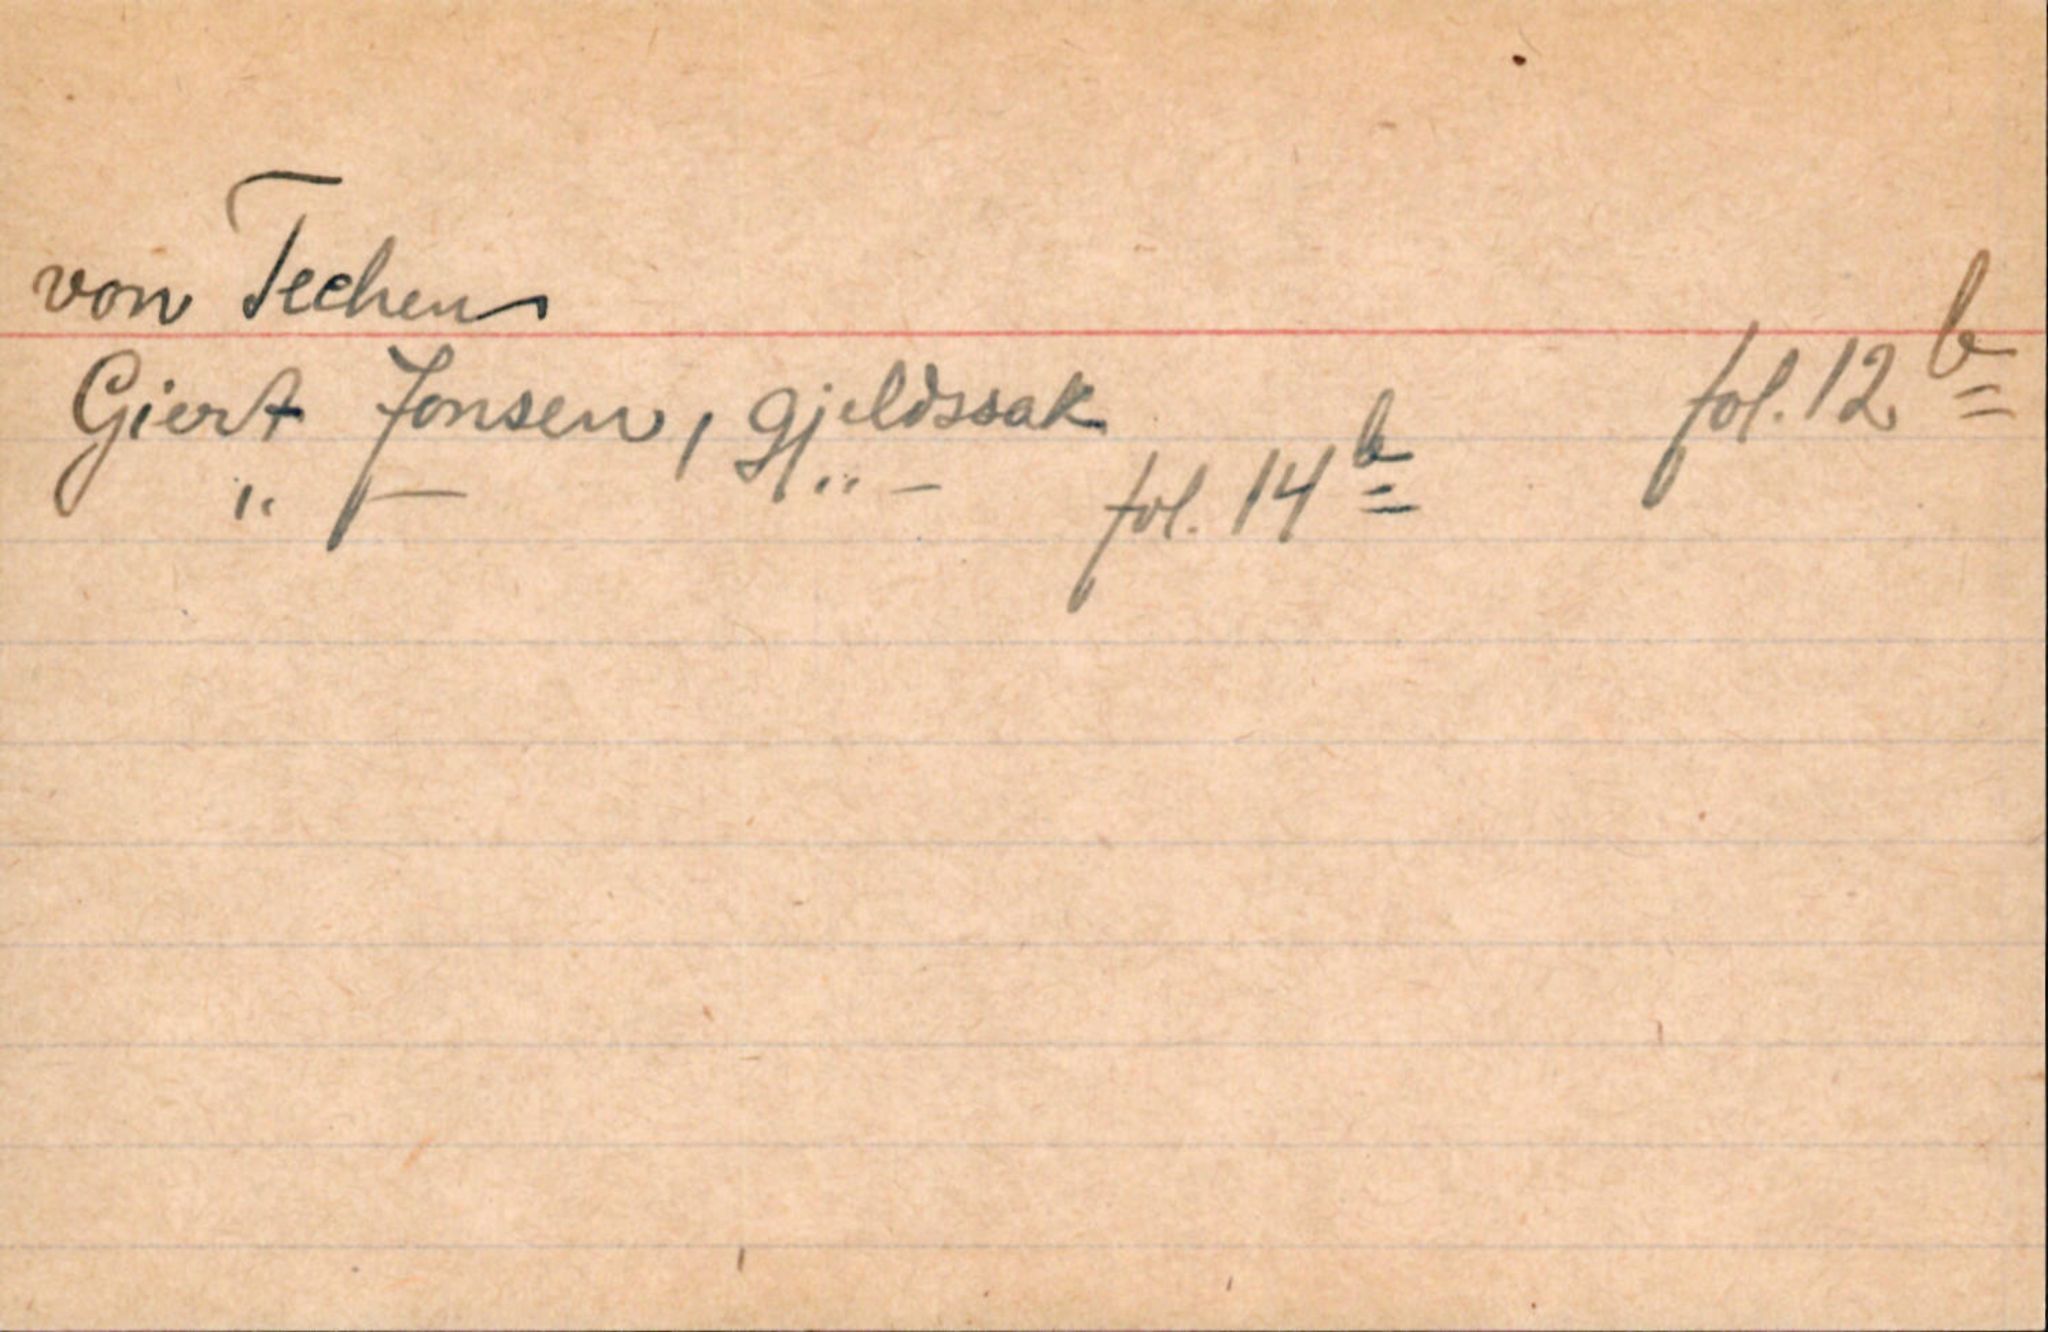 von Techen
Giert Jonsen, gjeldssak fol. 12 b
" — " — fol. 14 b